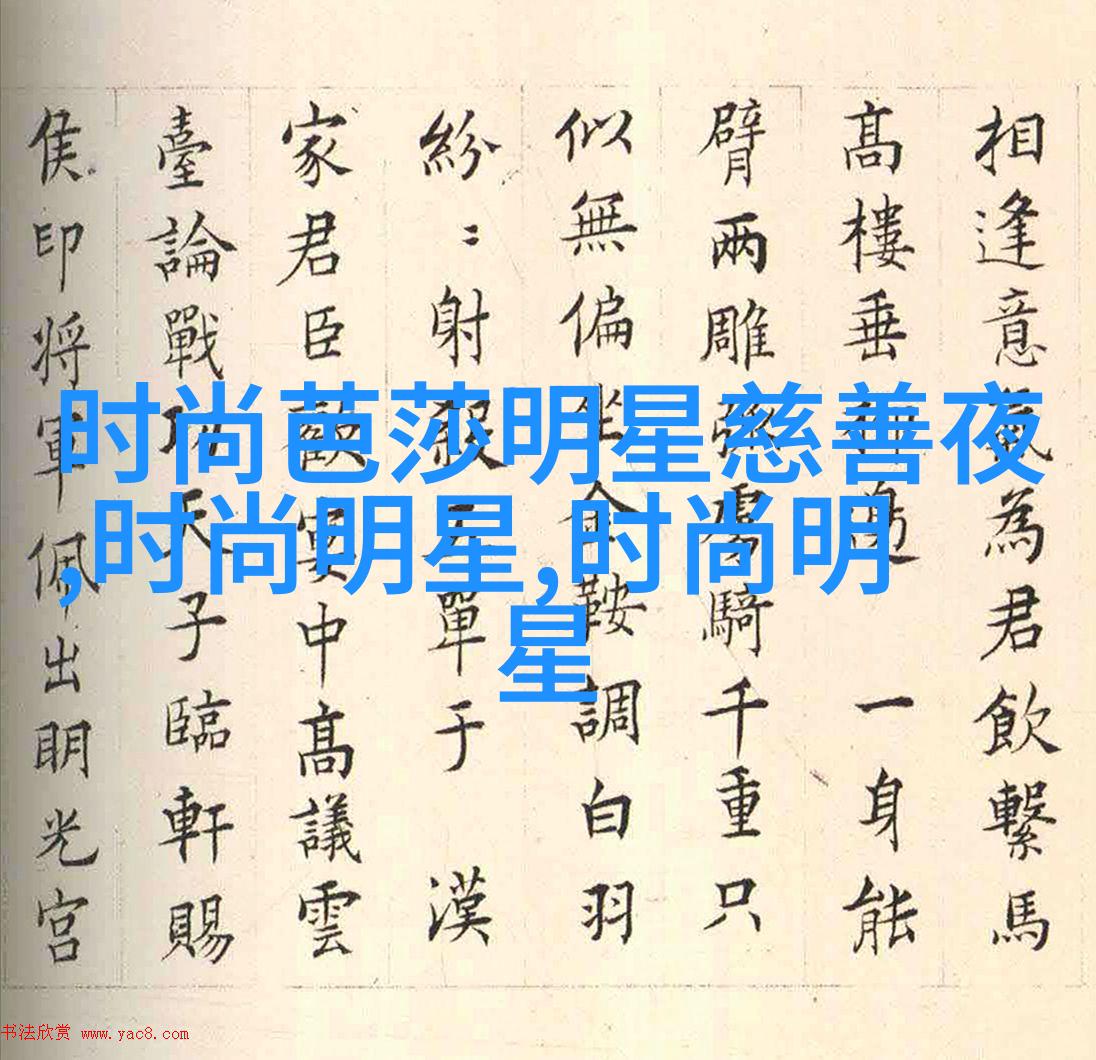 相逢意氣為君飲繫馬
高樓垂柳邊 一身能
臂兩雕弧虜騎千重只
似無偏坐金鞍調白羽
紛〻射殺五單于 漢
家君臣歡宴中高議雲
臺論戰功天子臨軒賜
侯印将軍佩出明光宮
时尚芭莎明星慈善夜
,时尚明星,时尚明
星
书法欣赏 www.yac8.com